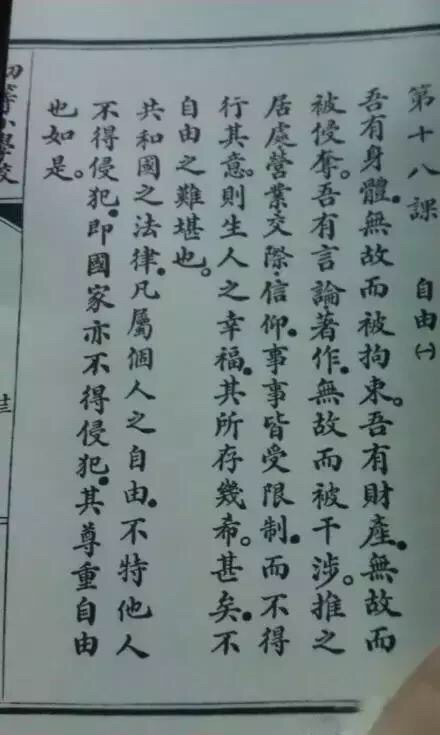 第十八課　自由㈠
吾有身體．無故而被拘束。吾有財產．無故而
被侵奪。吾有言論．著作．無故而被干涉。推之
居處．營業．交際．信仰．事事皆受限制．而不得
行其意。則生人之幸福．其所存幾希。甚矣．不
自由之難堪也。
共和國之法律．凡屬個人之自由．不特他人
不得侵犯．即國家亦不得侵犯．其尊重自由
也如是。
初等小學校